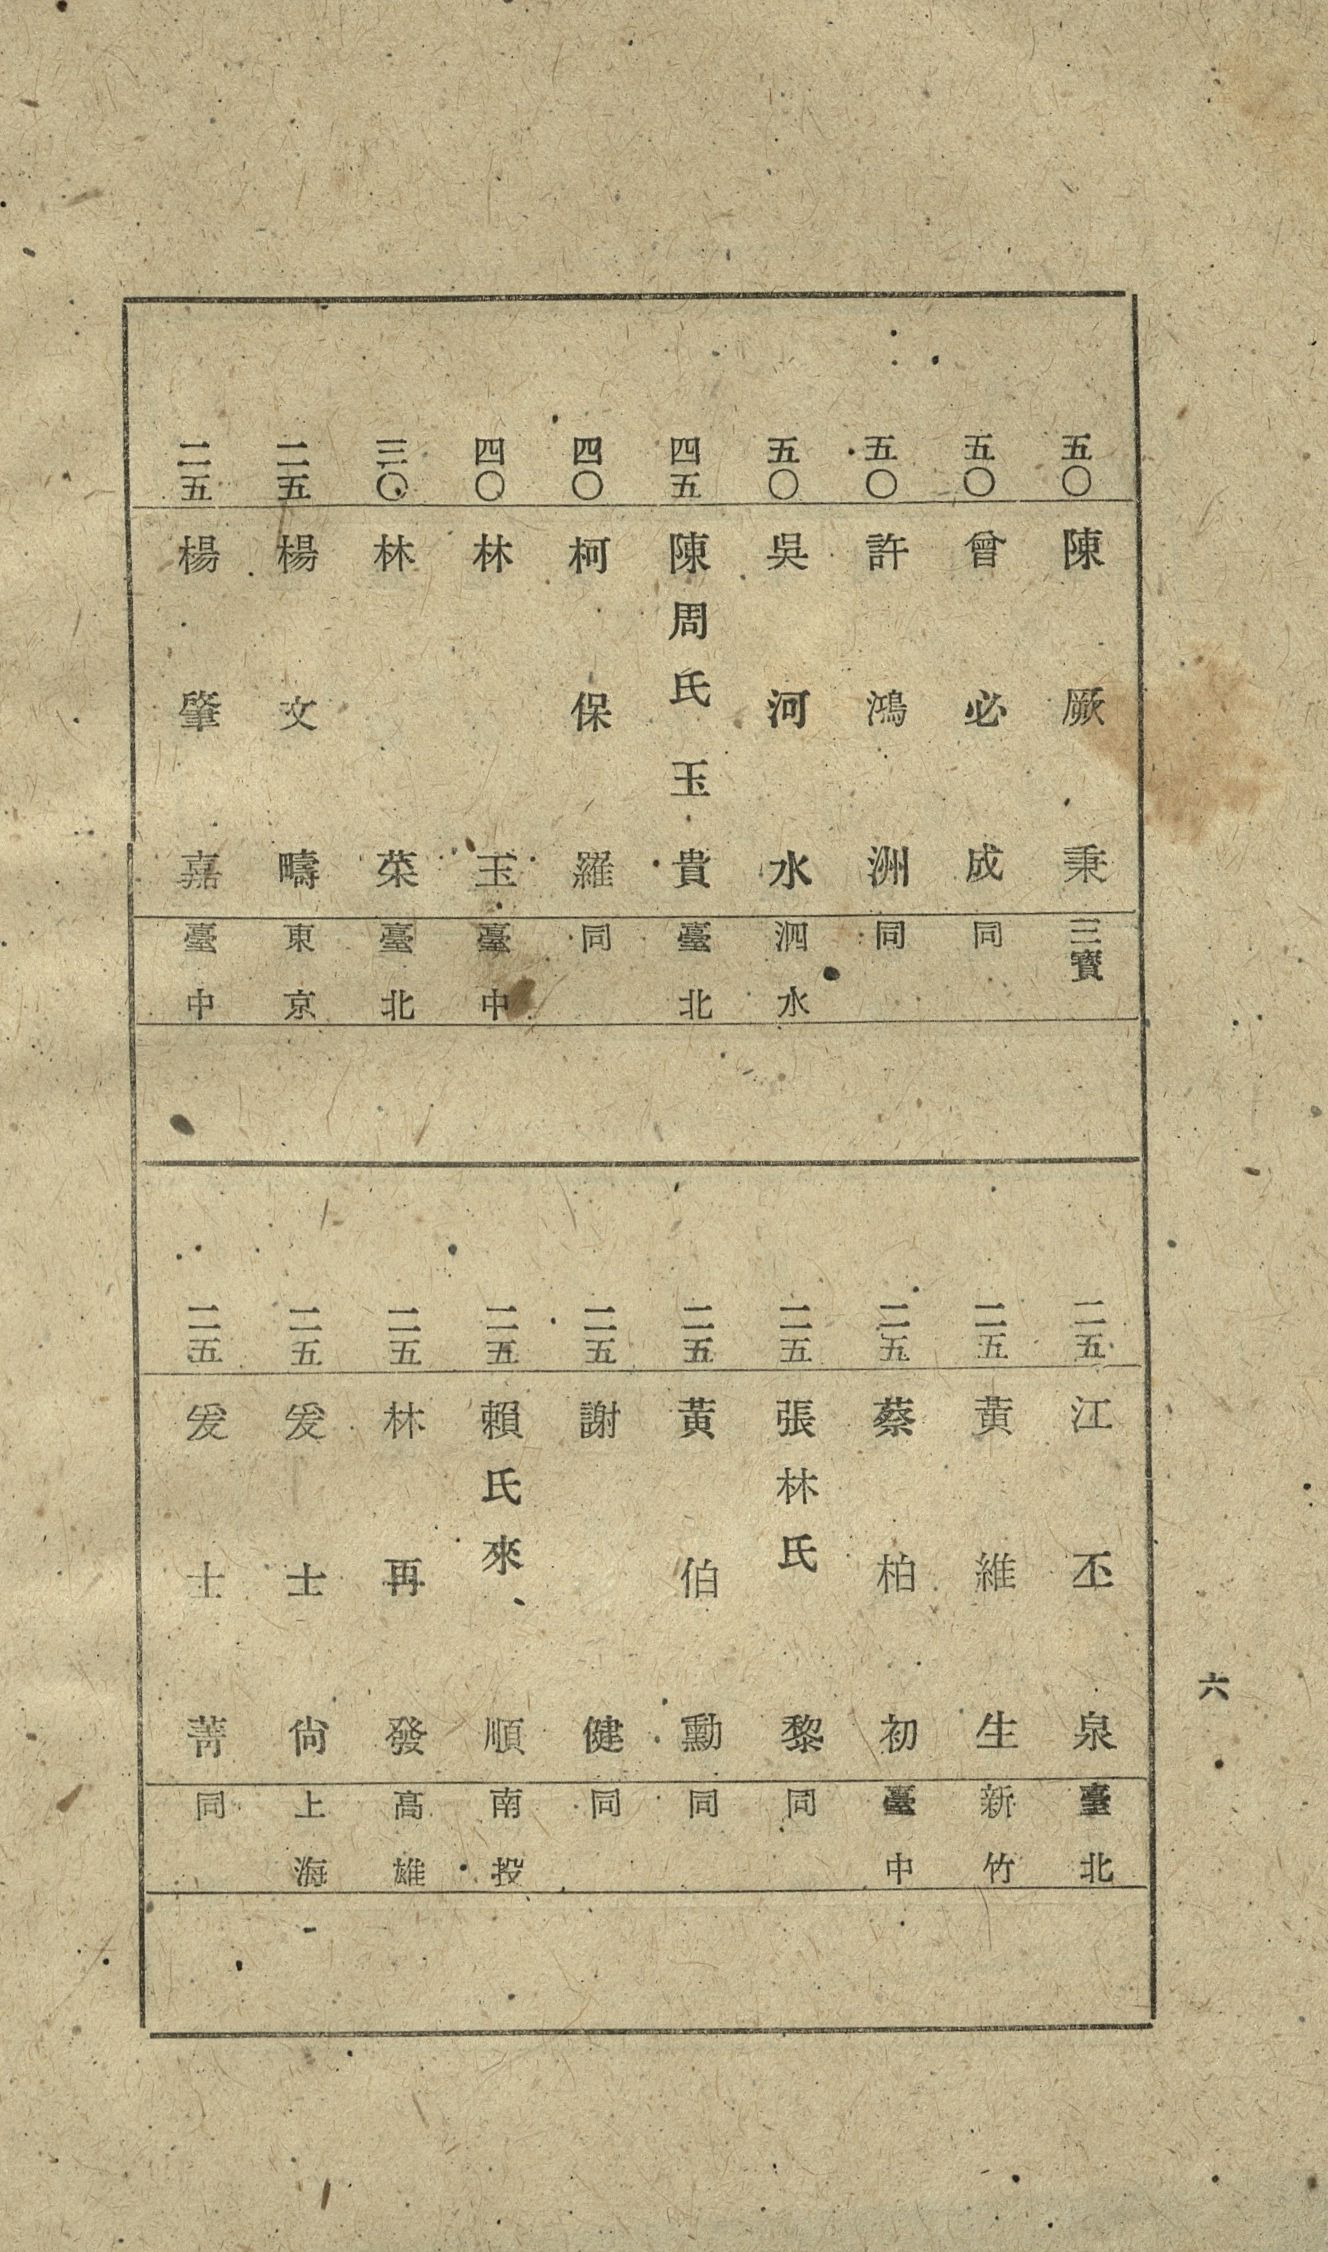 五〇 陳厥秉 三寶
五〇 曾必成 同
五〇 許鴻洲 同
五〇 吳河水 泗水
四五 陳周氏玉貴 臺北
四〇 柯保羅 同
四〇 林玉 臺中
三〇 林菜 臺北
二五 楊文疇 東京
二五 楊肇嘉 臺中
二五 江丕泉 臺北
二五 黃維生 新竹
二五 蔡柏初 臺中
二五 張林氏黎 同
二五 黃伯勳 同
二五 謝健 同
二五 賴氏來順 南投
二五 林再發 高雄
二五 爰士尙 上海
二五 爰士菁 同
六